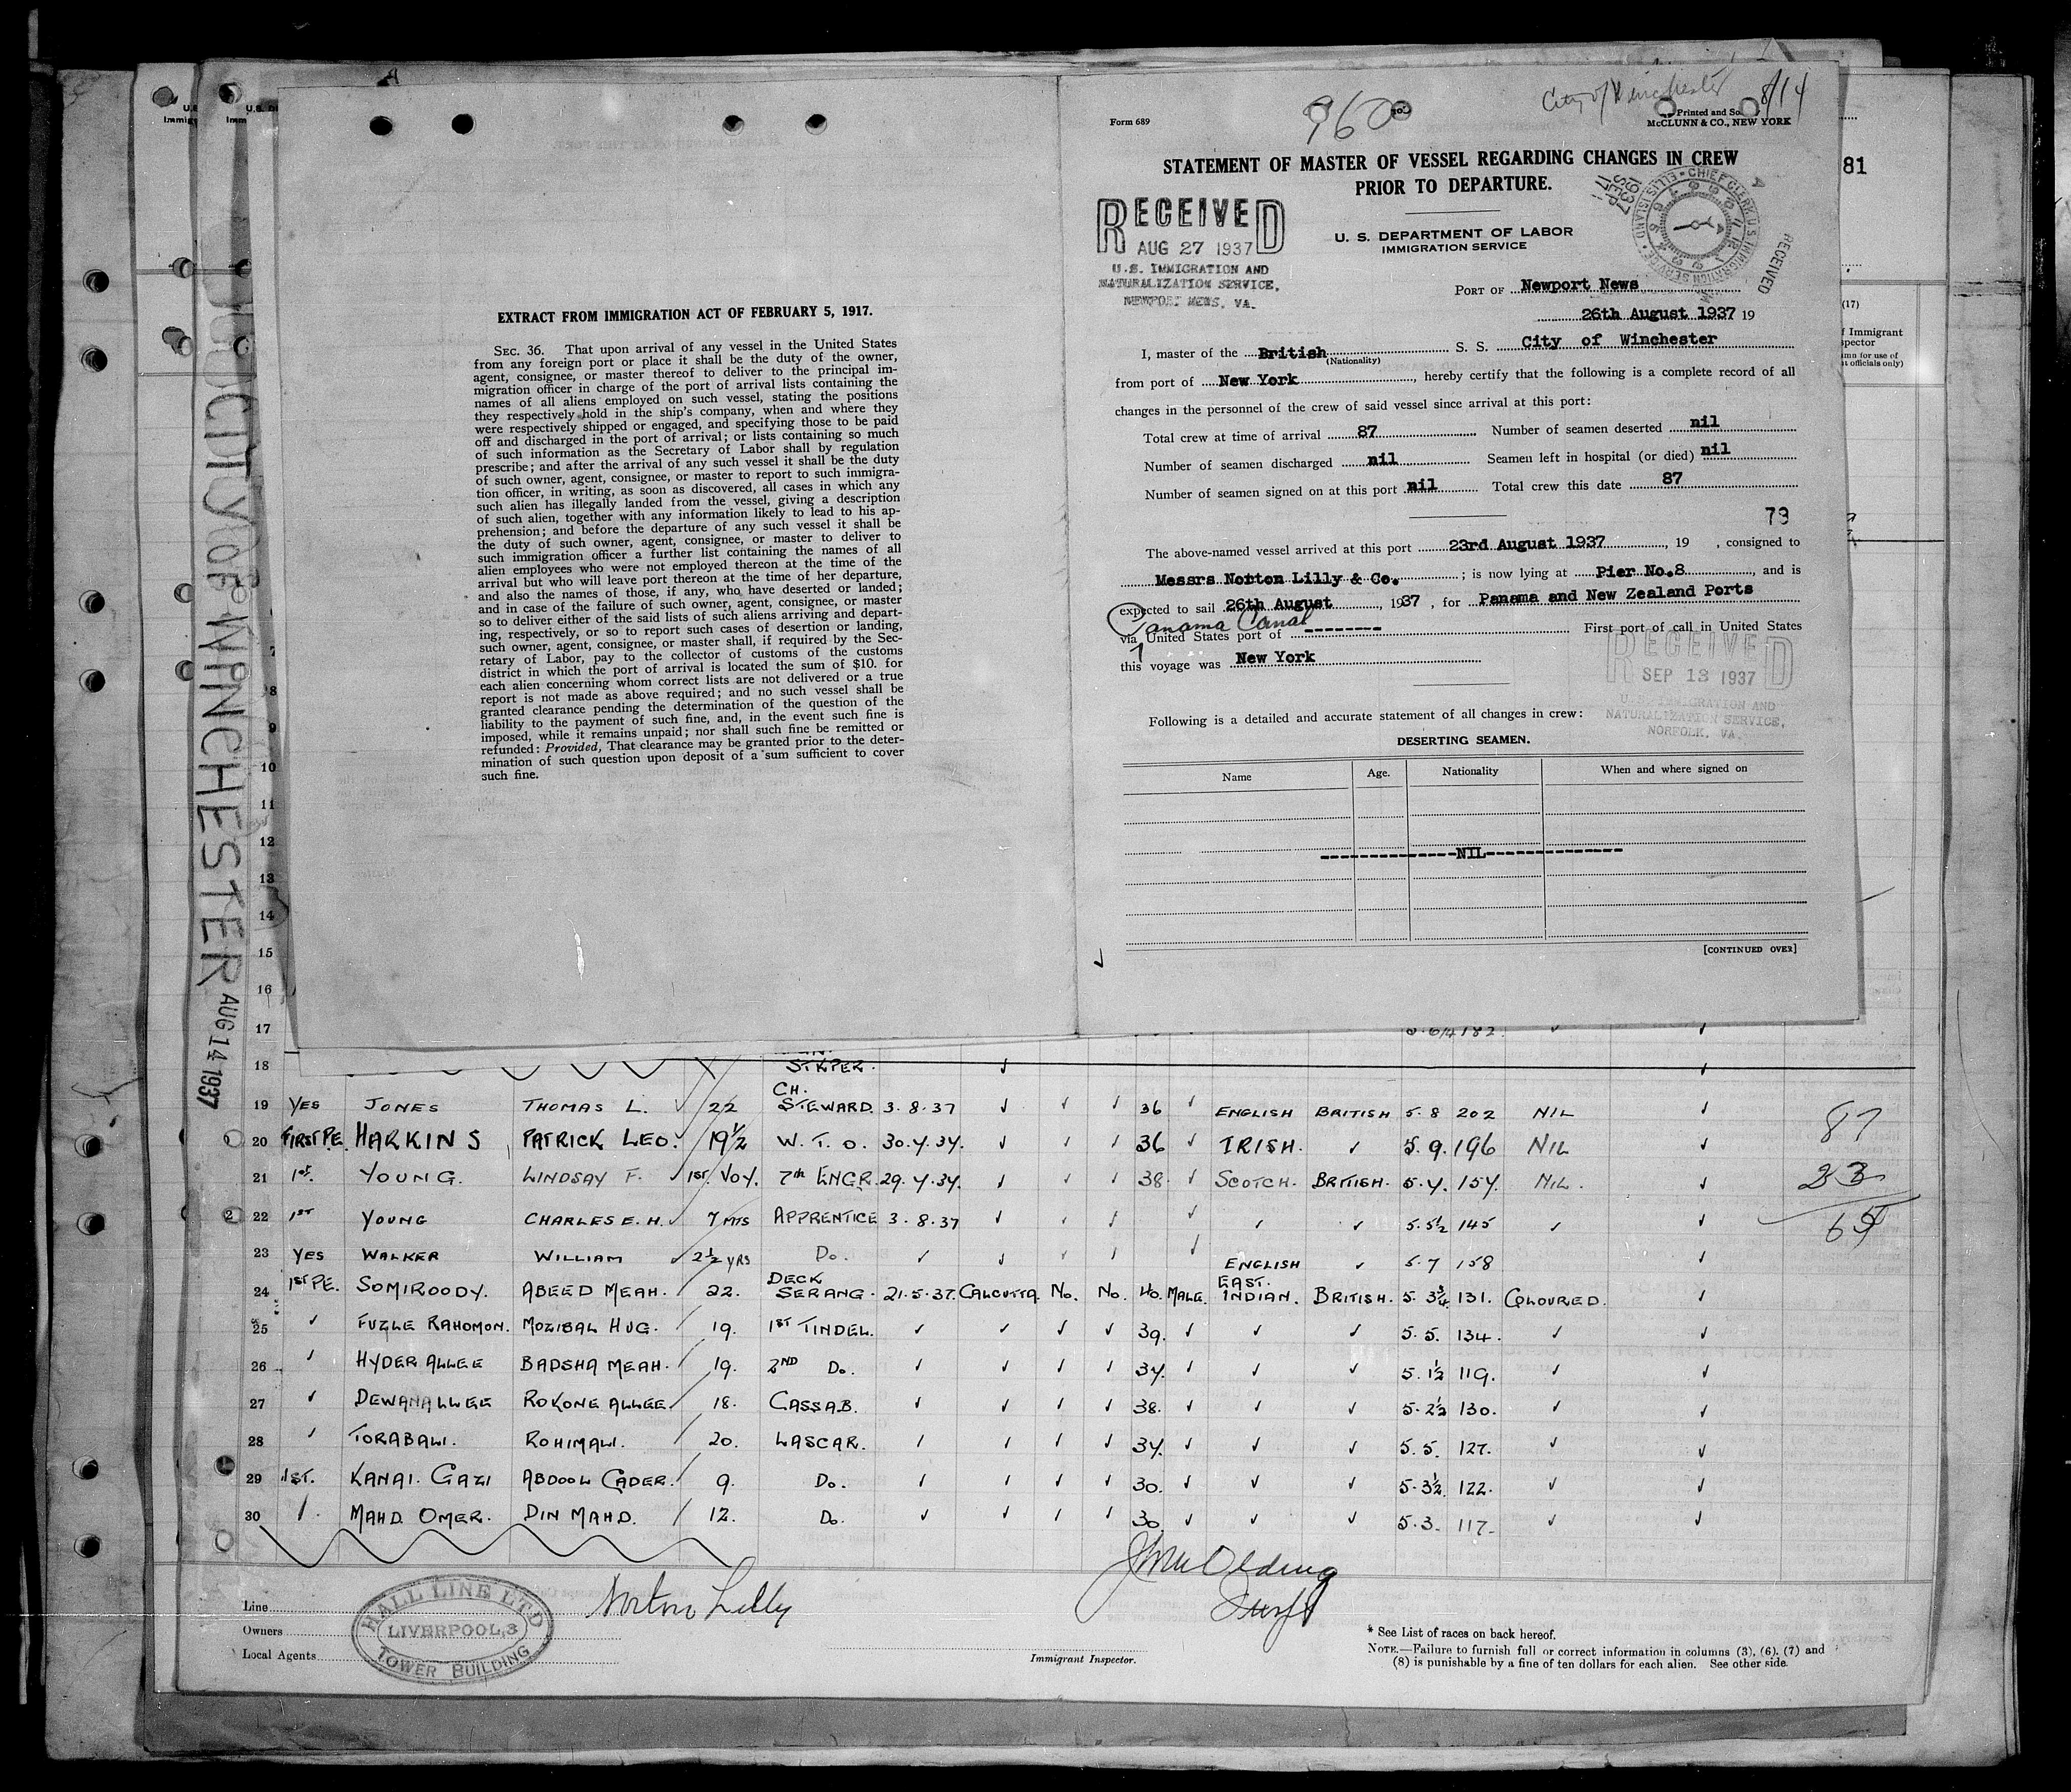 CITY OF WINCHESTER AUG 14 1937
EXTRACT FROM IMMIGRATION ACT OF FEBRUARY 5, 1917.
SEC. 36. That upon arrival of any vessel in the United States
from any foreign port or place it shall be the duty of the owner,
agent, consignee, or master thereof to deliver to the principal im-
migration officer in charge of the port of arrival lists containing the
names of all aliens employed on such vessel, stating the positions
they respectively hold in the ship's company, when and where they
were respectively shipped or engaged, and specifying those to be paid
off and discharged in the port of arrival; or lists containing so much
of such information as the Secretary of Labor shall by regulation
prescribe; and after the arrival of any such vessel it shall be the duty
of such owner, agent, consignee, or master to report to such immigra-
tion officer, in writing, as soon as discovered, all cases in which any
such alien has illegally landed from the vessel, giving a description
of such alien, together with any information likely to lead to his ap-
prehension; and before the departure of any such vessel it shall be
the duty of such owner, agent, consignee, or master to deliver to
such immigration officer a further list containing the names of all
alien employees who were not employed thereon at the time of the
arrival but who will leave port thereon at the time of her departure,
and also the names of those, if any, who have deserted or landed;
and in case of the failure of such owner, agent, consignee, or master
so to deliver either of the said lists of such aliens arriving and depart-
ing, respectively, or so to report such cases of desertion or landing,
such owner, agent, consignee, or master shall, if required by the Sec-
retary of Labor, pay to the collector of customs of the customs
district in which the port of arrival is located the sum of $10. for
each alien concerning whom correct lists are not delivered or a true
report is not made as above required; and no such vessel shall be
granted clearance pending the determination of the question of the
liability to the payment of such fine, and, in the event such fine is
imposed, while it remains unpaid; nor shall such fine be remitted or
refunded: Provided, That clearance may be granted prior to the deter-
mination of such question upon deposit of a sum sufficient to cover
such fine.
City of Winchester 8/14
960
Form 689
Printed and So
McCLUNN & CO., NEW YORK
STATEMENT OF MASTER OF VESSEL REGARDING CHANGES IN CREW
PRIOR TO DEPARTURE.
RECEIVED
AUG 27 1937
U.S. IMMIGRATION AND
NATURALIZATION SERVICE,
NEWPORT NEWS, VA.
U. S. DEPARTMENT OF LABOR
IMMIGRATION SERVICE
CHIEF CLERK U.S. IMMIGRATION SERVICE ELLIS ISLAND
RECEIVED
1937 SEP 17
PORT OF Newport News
26th August 1937 19
I, master of the British S. S. City of Winchester
(Nationality)
from port of New York, hereby certify that the following is a complete record of all
changes in the personnel of the crew of said vessel since arrival at this port:
Total crew at time of arrival 87 Number of seamen deserted nil
Number of seamen discharged nil Seamen left in hospital (or died) nil
Number of seamen signed on at this port nil Total crew this date 87
73
The above-named vessel arrived at this port 23rd August 1937, 19 , consigned to
Messrs Norton Lilly & Co. ; is now lying at Pier No.8, and is
expected to sail 26th August, 1937, for Panama and New Zealand Ports
Panama Canal
via United States port of -------- First port of call in United States
this voyage was New York
RECEIVED
SEP 13 1937
U.S. IMMIGRATION AND
NATURALIZATION SERVICE,
NORFOLK, VA.
Following is a detailed and accurate statement of all changes in crew:
DESERTING SEAMEN.
Name Age. Nationality When and where signed on
--------------NIL--------------
[CONTINUED OVER]
81
(17)
Immigrant
spector
mn for use of
officials only)
7
8
9
10
11
12
13
14
15
16
17
18 STKPER.
19 YES JONES THOMAS L. 22 CH. STEWARD. 3.8.37 ✓ ✓ ✓ 36 ✓ ENGLISH BRITISH 5.8 202 NIL ✓
20 FIRST PE. HARKINS PATRICK LEO. 19½ W. T. O. 30.7.37. ✓ ✓ ✓ 36 ✓ IRISH. ✓ 5.9. 196 NIL ✓
21 1st. YOUNG. LINDSAY F. 1ST. VOY. 7th ENGR. 29.7.37. ✓ ✓ ✓ 38. ✓ SCOTCH. BRITISH. 5.7. 157. NIL. ✓
22 1ST YOUNG CHARLES E. H. 7 MTS APPRENTICE 3.8.37 ✓ ✓ ✓ ✓ ✓ ✓ 5.5½ 145 ✓ ✓
23 YES WALKER WILLIAM 2½ YRS Do. ✓ ✓ ✓ ✓ ✓ ENGLISH ✓ 5.7 158 ✓
24 1ST PE. SOMIROODY. ABEED MEAH. 22. DECK SERANG. 21.5.37. CALCUTTA. No. No. 40. MALE. EAST. INDIAN. BRITISH. 5.3¾ 131. COLOURED. ✓
25 ✓ FUZLE RAHOMON. MOZIBAL HUG. 19. 1ST TINDEL. ✓ ✓ ✓ ✓ 39. ✓ ✓ ✓ 5.5. 134. ✓ ✓
26 ✓ HYDER ALLEE BADSHA MEAH. 19. 2ND Do. ✓ ✓ ✓ ✓ 37. ✓ ✓ ✓ 5.1½ 119. ✓ ✓
27 ✓ DEWANALLEE ROKONE ALLEE 18. CASSAB. ✓ ✓ ✓ ✓ 38. ✓ ✓ ✓ 5.2½ 130. ✓ ✓
28 ✓ TORABALI. ROHIMALI. 20. LASCAR. ✓ ✓ ✓ ✓ 37. ✓ ✓ ✓ 5.5. 127. ✓ ✓
29 1ST. KANAI. GAZI ABDOOL CADER. 9. Do. ✓ ✓ ✓ ✓ 30. ✓ ✓ ✓ 5.3½ 122. ✓ ✓
30 ✓ MAHD. OMER. DIN MAHD. 12. Do. ✓ ✓ ✓ ✓ 30. ✓ ✓ ✓ 5.3. 117. ✓ ✓
87
23
65
Line
Owners
Local Agents
HALL LINE LTD
LIVERPOOL, 3
TOWER BUILDING
Norton Lilly
Immigrant Inspector.
* See List of races on back hereof.
NOTE.—Failure to furnish full or correct information in columns (3), (6), (7) and
(8) is punishable by a fine of ten dollars for each alien. See other side.